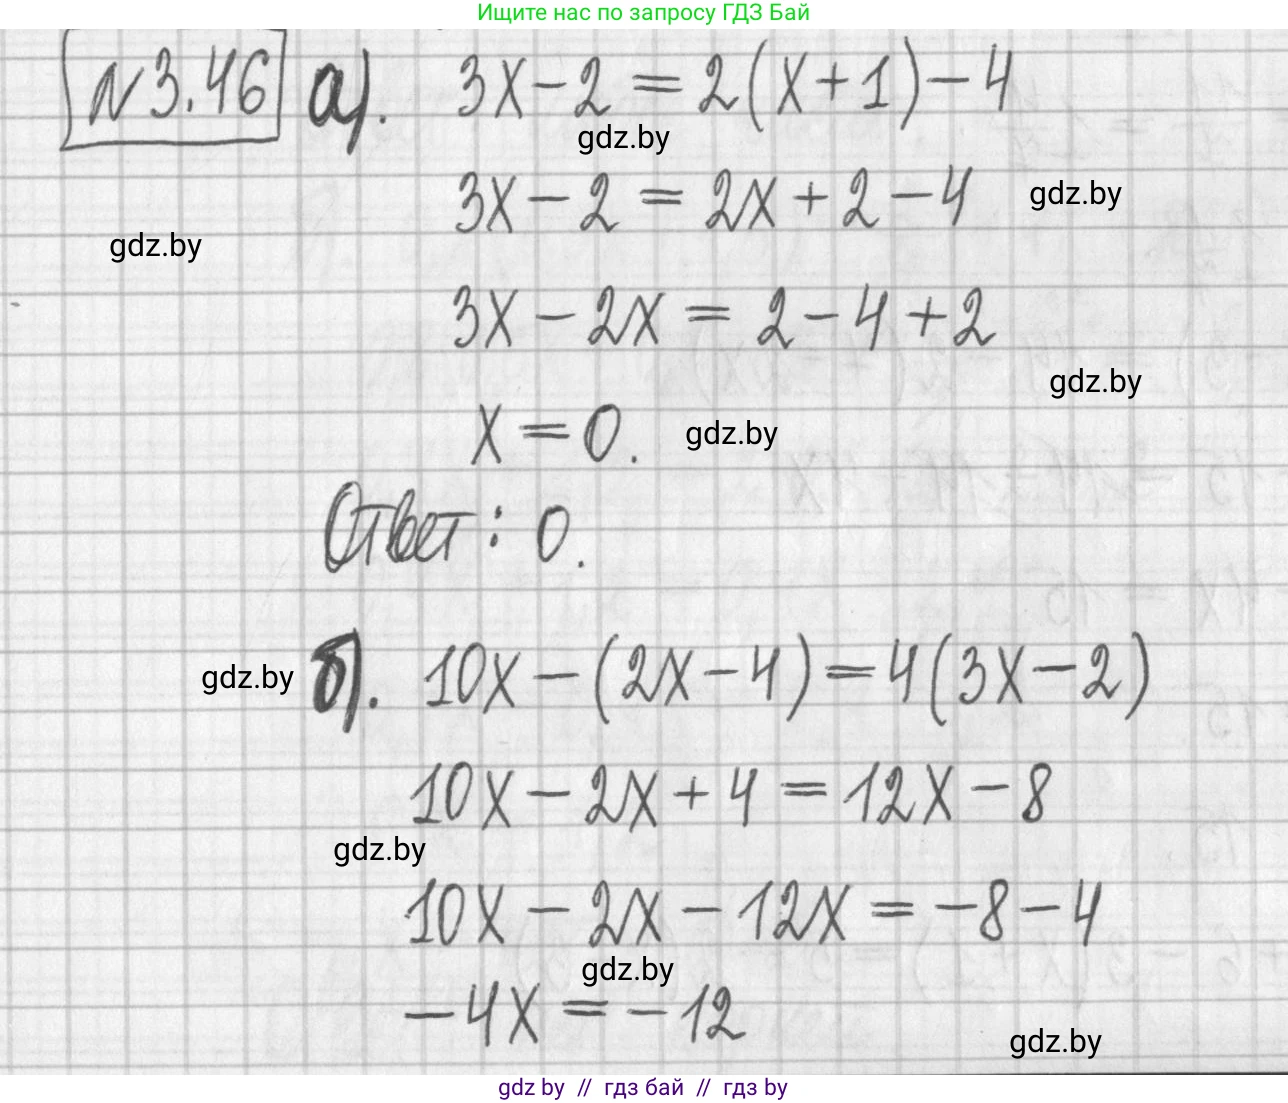 Ищите нас по запросу ГДЗ Бай
N3.46 а). 3x-2=2(x+1)-4
gdz.by
3x-2=2x+2-4 gdz.by
gdz.by
3x-2x=2-4+2
gdz.by
x=0. gdz.by
Ответ: 0.
gdz.by б). 10x-(2x-4)=4(3x-2)
10x-2x+4=12x-8
gdz.by
10x-2x-12x=-8-4
gdz.by
-4x=-12
gdz.by
gdz by // гдз бай // гдз by